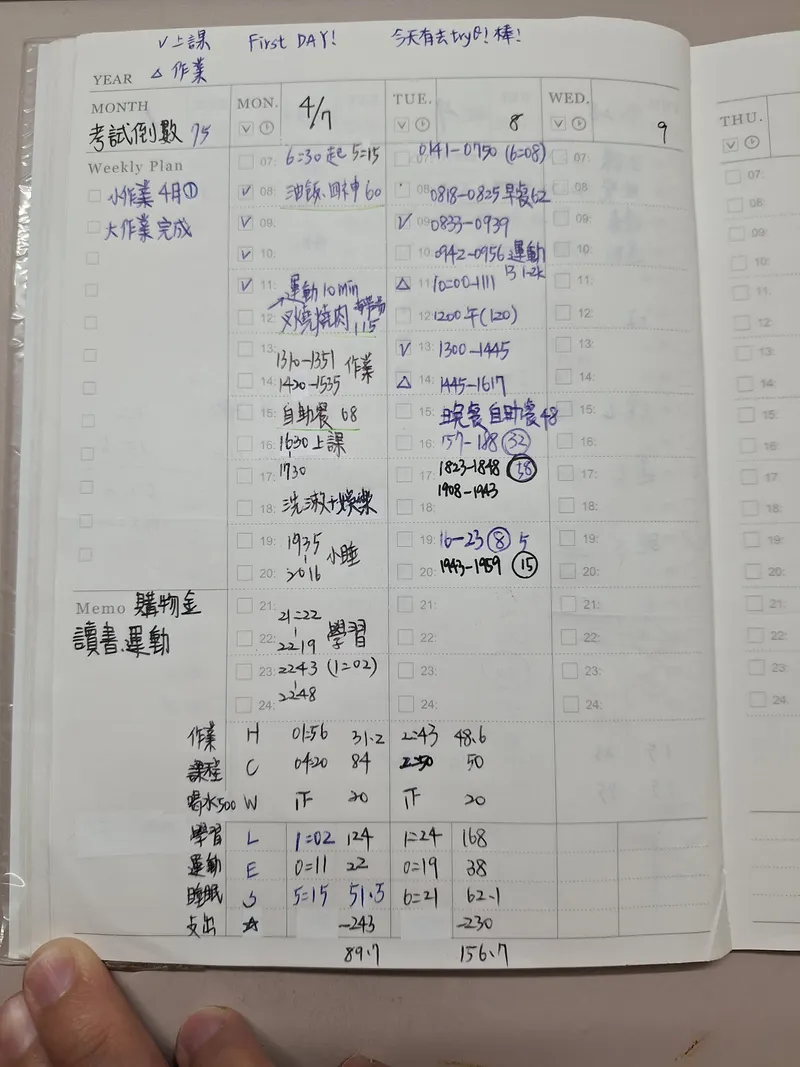 ✓上課 First DAY! 今天有去try e! 棒!
YEAR △ 作業
MONTH
考試倒數 75
MON. 4/7
TUE. 8
WED. 9
THU.
Weekly Plan
小作業 4日①
大作業 完成
07: 6:30 起 5:15
08: 油飯、四神 60
09:
10:
11: 運動 10 min
12: 叉燒燒肉 115
13: 1310-1351 作業
14: 1420-1535
15: 自助餐 68
16: 1630 上課
17: 1730
18: 洗漱+娛樂
19: 1935 小睡
20: 2016
21: 21:22
22: 2219 學習
23: 2243 (1:02)
24: 2248
07: 0141-0750 (6:08)
08: 0818-0825 早餐62
09: 0833-0939
10: 0942-0956 運動
11: 10:00-1111
12: 1200 午(120)
13: 1300-1445
14: 1445-1617
15: 晚餐 自助餐 48
16: 157-188 32
17: 1823-1848 38
18: 1908-1943
19: 16-23 8 5
20: 1943-1959 15
21:
22:
23:
24:
07:
08:
09:
10:
11:
12:
13:
14:
15:
16:
17:
18:
19:
20:
21:
22:
23:
24:
07:
08:
09:
10:
11:
12:
13:
14:
15:
16:
17:
18:
19:
20:
21:
22:
23:
24:
Memo 購物金
讀書、運動
作業 H 01:56 31.2 2:43 48.6
課程 C 04:20 84 2:50 50
喝水500 W 正 20 正 20
學習 L 1:02 124 1:24 168
運動 E 0:11 22 0:19 38
睡眠 S 5:15 51.5 6:21 62.1
支出 ☆ -243 -230
89.7 156.7